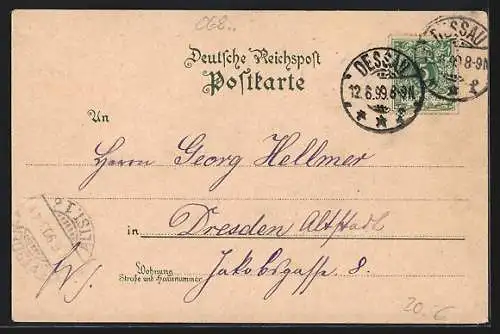 068..
Deutsche Reichspost
Postkarte
DESSAU
12.6.99.8-9N.
DESSAU
99.8-9N
An
Herrn Georg Hellmer
in Dresden Altstadt
Wohnung
Straße und Hausnummer
Jakobsgasse 8.
20.-